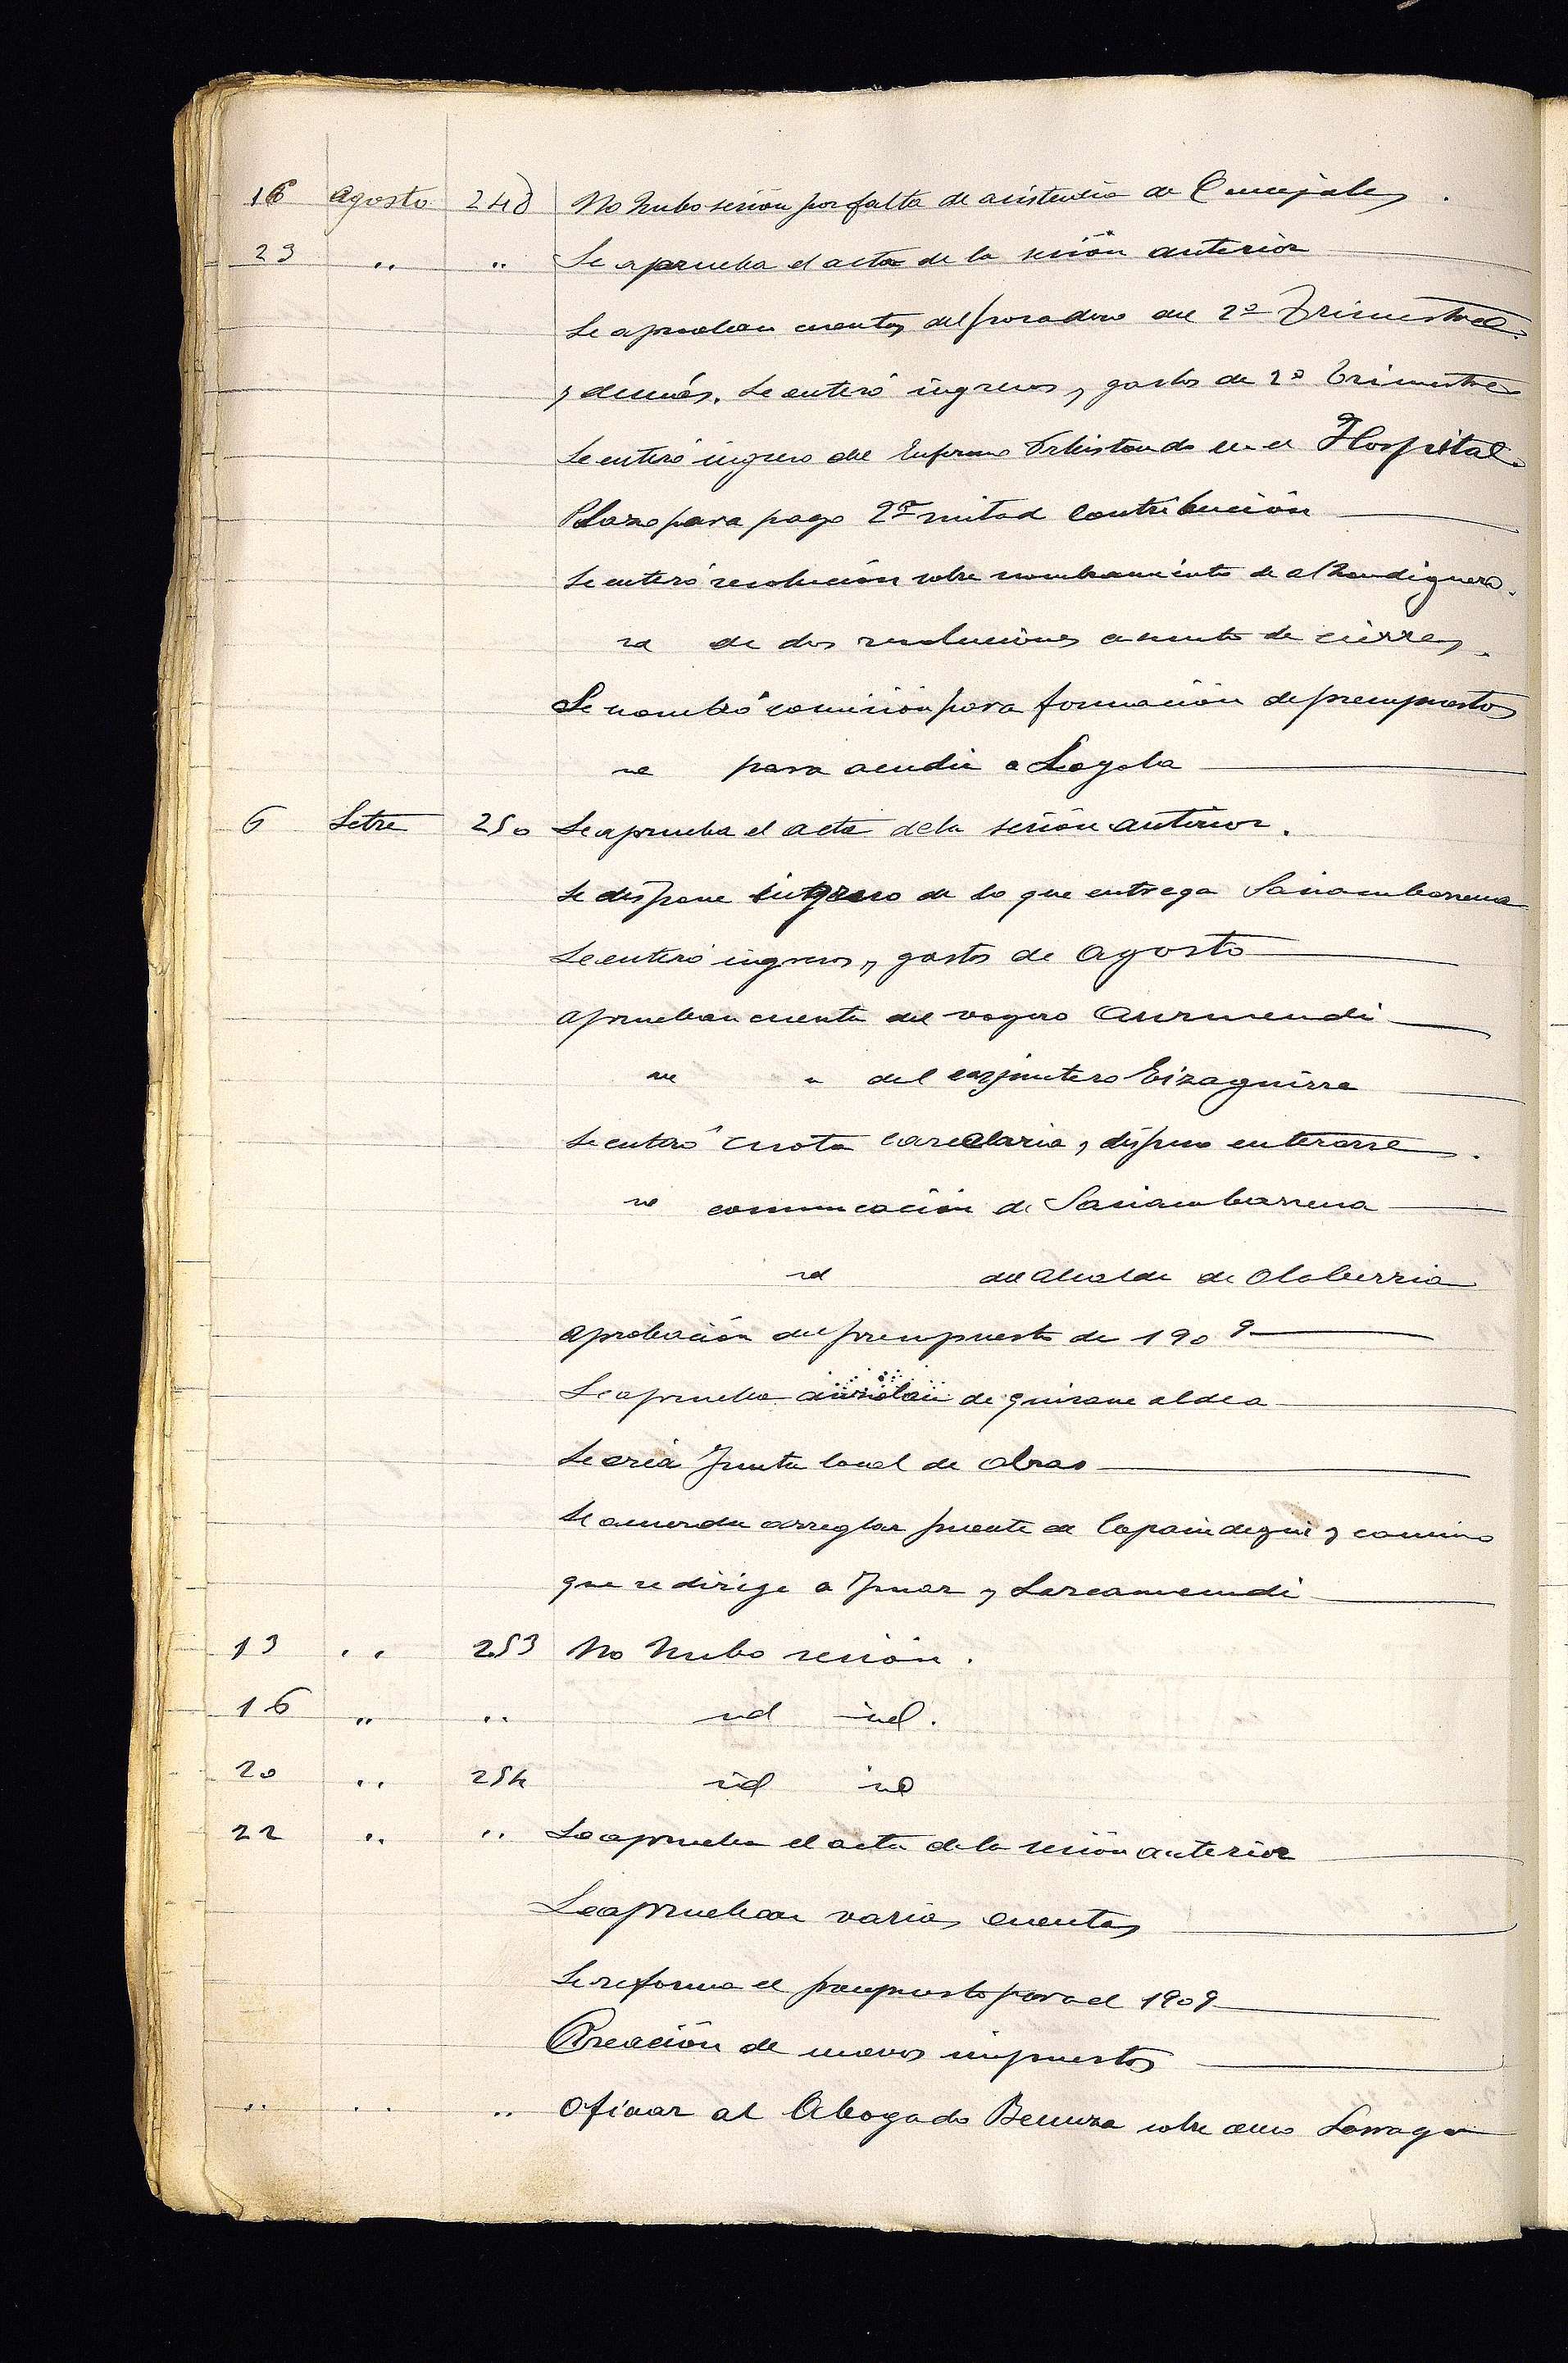 16 Agosto 248 No hubo sesión por falta de asistencia de Concejales.
23 " " Se aprueba el acta de la sesión anterior
Se aprueban cuentas del 2º Trimestre
y demás. Se enteró ingresos y gastos de 2º trimestre
Se enteró ingreso del enfermo Urbistondo en el Hospital.
Plazo para pago 2ª mitad contribución
Se enteró resolución sobre nombramiento de alhondiguero.
id de dos resoluciones asunto de cierres.
Se nombró comisión para formación de presupuestos
id para acudir a Loyola
6 Setre 250 Se aprueba el acta de la sesión anterior.
Se dispone ingreso de lo que entrega Sarriambarrena
Se enteró ingresos y gastos de Agosto
Aprueban cuenta del Aurmendi
id " del carpintero Eizaguirre
Se enteró cuota carcelaria y dispuso enterarse.
id comunicación de Sarriambarrena
id del Alcalde de Olaberria
Aprobación del presupuesto de 1909
Se aprueba de
Se crea Junta local de obras
Se acuerda arreglar puente de Capaindegui y camino
que se dirige a y Larcamendi
13 " 253 No hubo sesión.
16 " " id id.
20 " 254 id id
22 " " Se aprueba el acta de la sesión anterior
Se aprueban varias cuentas
Se reforma el presupuesto para el 1909
Creación de nuevos impuestos
" " " Oficiar al Abogado sobre